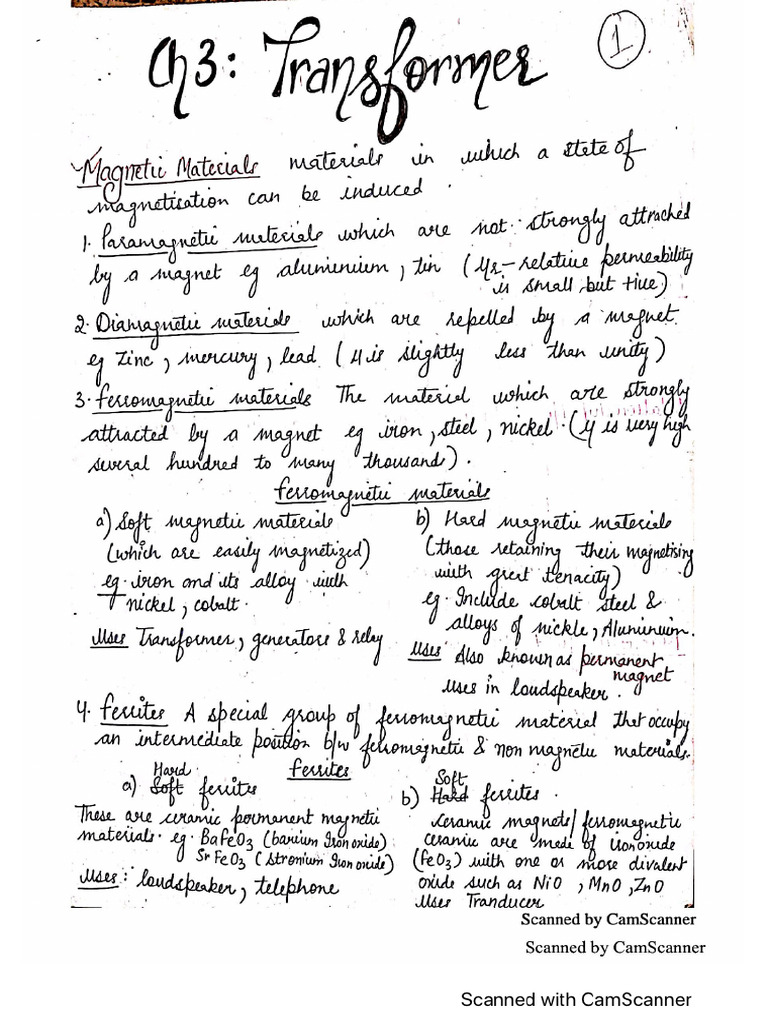 Ch3: Transformer
1
Magnetic Materials materials in which a state of
magnetisation can be induced.
1. Paramagnetic materials which are not strongly attrached
by a magnet eg aluminium, tin (μr – relative permeability
is small but +ive)
2. Diamagnetic materials which are repelled by a magnet.
eg Zinc, mercury, lead (μ is slightly less than unity)
3. ferromagnetic materials The material which are strongly
attracted by a magnet eg iron, steel, nickel. (μ is very high
several hundred to many thousand).
ferromagnetic materials
a) Soft magnetic materials
(which are easily magnetized)
eg. iron and its alloy with
nickel, cobalt.
Uses Transformer, generators & relay
b) Hard magnetic materials
(those retaining their magnetising
with great tenacity)
eg. Include cobalt steel &
alloys of nickle, Aluminium.
Uses Also known as permanent
magnet
uses in loudspeaker.
4. ferrites A special group of ferromagnetic material that occupy
an intermediate position b/w ferromagnetic & non magnetic materials.
ferrites
Hard
a) Soft ferrites
These are ceramic permanent magnetic
materials. eg. BaFeO3 (barium Iron oxide)
SrFeO3 (Stronium Iron oxide)
Uses: loudspeaker, telephone
Soft
b) Hard ferrites.
ceramic magnets/ferromagnetic
ceramic are made of iron oxide
(FeO3) with one or more divalent
oxide such as NiO, MnO, ZnO
Uses Tranducer
Scanned by CamScanner
Scanned by CamScanner
Scanned with CamScanner